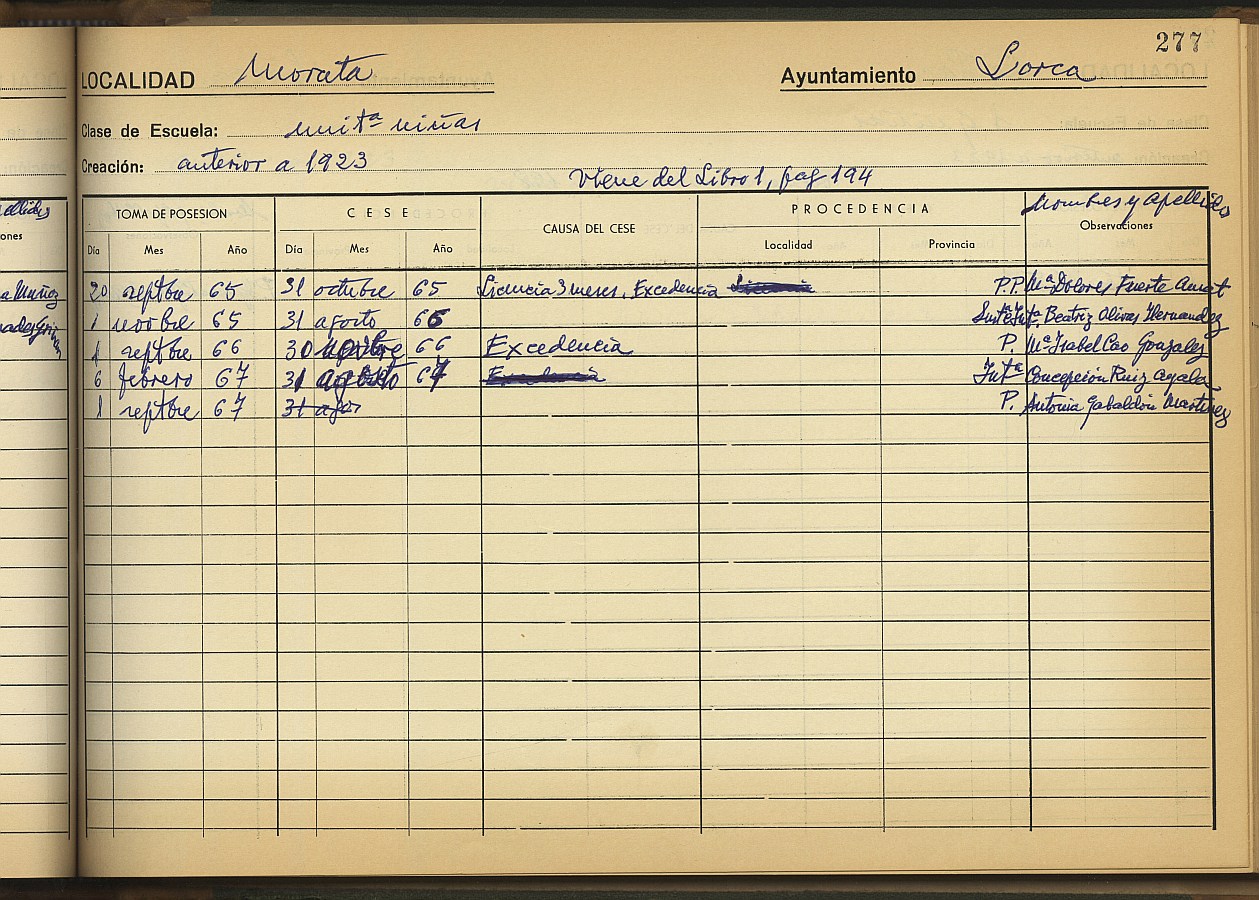 277
LOCALIDAD Morata Ayuntamiento Lorca
Clase de Escuela: unitª niñas
Creación: anterior a 1923
Viene del Libro 1, pag 194
TOMA DE POSESION CESE CAUSA DEL CESE PROCEDENCIA Nombres y apellidos
Observaciones
Día Mes Año Día Mes Año Localidad Provincia
ones
a Muñoz 20 septbre 65 31 octubre 65 Licencia 3 meses. Excedencia P.P. Mª Dolores Fuerte Amat
1 novbre 65 31 agosto 66 Beatriz Olivas Hernandez
1 septbre 66 30 66 Excedencia P. Mª Isabel Cao Gonzalez
6 febrero 67 31 agosto 67 Intª Concepción Ruiz Ayala
1 septbre 67 31 agos P. Antonia Gabaldón Martinez